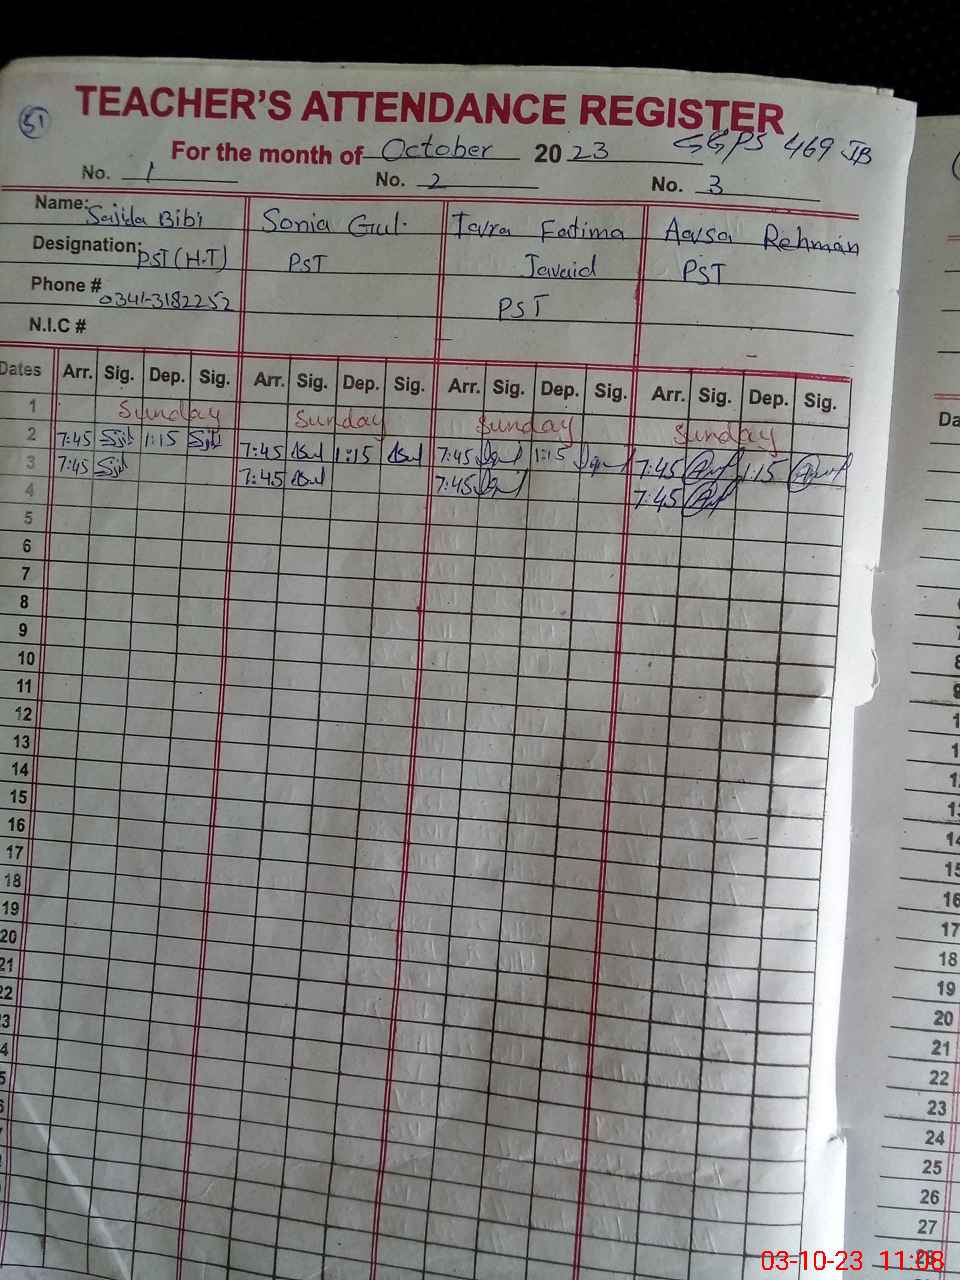 51
TEACHER'S ATTENDANCE REGISTER
For the month of October 2023 GGPS 469 JB
No. 1 No. 2 No. 3
Name: Sajida Bibi Sonia Gul. Fatima Aavsa Rehman
Designation: PST (H.T) PST Javaid PST
Phone # 0341-3182252 PST
N.I.C #
Dates Arr. Sig. Dep. Sig. Arr. Sig. Dep. Sig. Arr. Sig. Dep. Sig. Arr. Sig. Dep. Sig.
1 Sunday Sunday Sunday Sunday
2 7:45 1:15 7:45 1:15 7:45 1:15 7:45 1:15
3 7:45 7:45 7:45 7:45
4
5
6
7
8
9
10
11
12
13
14
15
16
17
18
19
20
21
22
3
4
5
Da
17
18
19
20
21
22
23
24
25
26
27
28
03-10-23 11:08